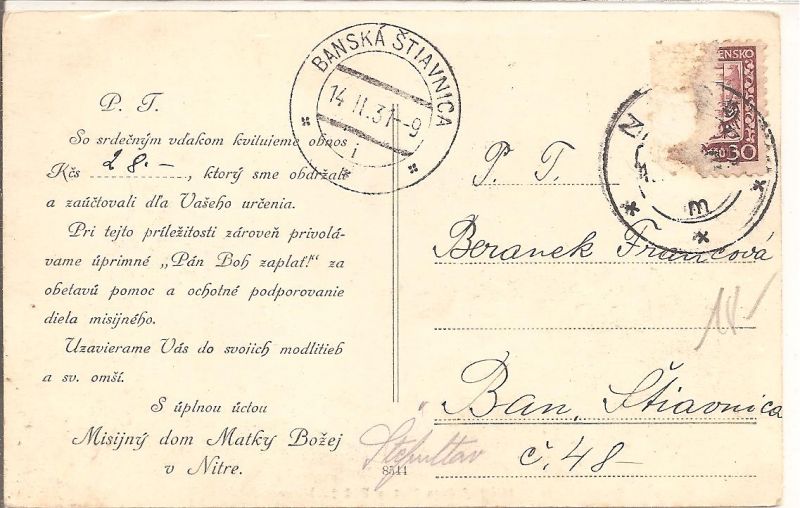 P. T.
So srdečným vďakom kvitujeme obnos
Kčs 28.-, ktorý sme obdržali
a zaúčtovali dľa Vašeho určenia.
Pri tejto príležitosti zároveň privolá-
vame úprimné „Pán Boh zaplať!“ za
obetavú pomoc a ochotné podporovanie
diela misijného.
Uzavierame Vás do svojich modlitieb
a sv. omší.
S úplnou úctou
Misijný dom Matky Božej
v Nitre.
8511
BANSKÁ ŠTIAVNICA
14 II. 31-9
i
ENSKO
30
m
P. T.
Beranek Francová
Ban. Štiavnica
č. 48